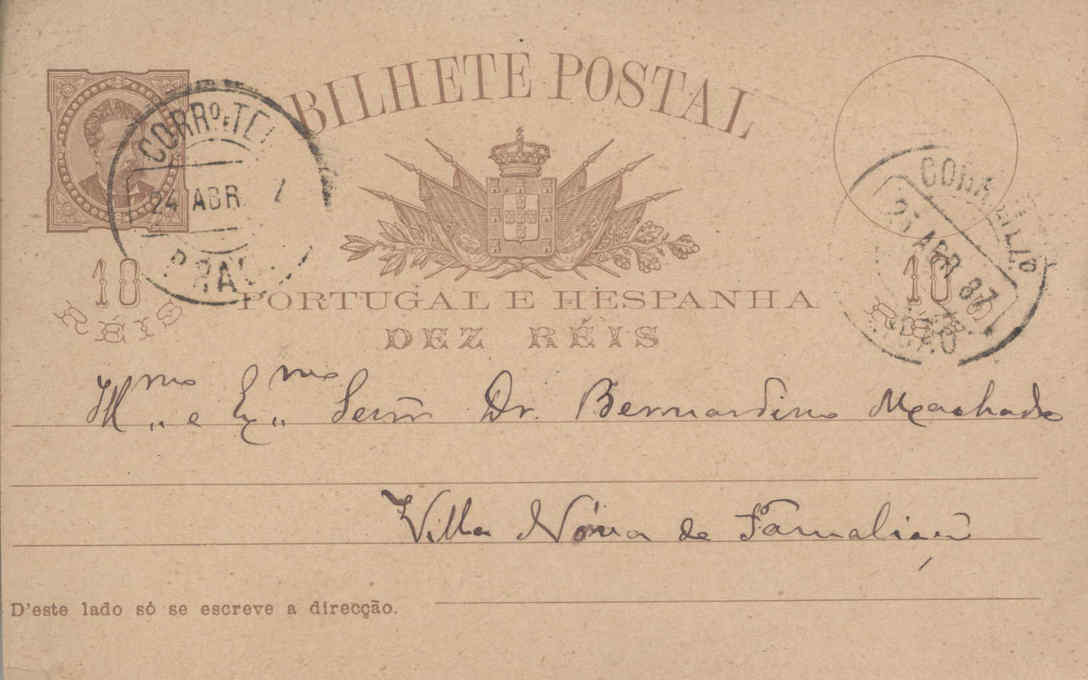 BILHETE POSTAL
CORRO E TEL
24 ABR
10
RÉIS
PORTUGAL E HESPANHA
DEZ RÉIS
25 ABR 87
10
RÉIS
Illmo e Exmo Senr Dr. Bernardino Machado
Villa Nóva de Famalicão
D'este lado só se escreve a direcção.